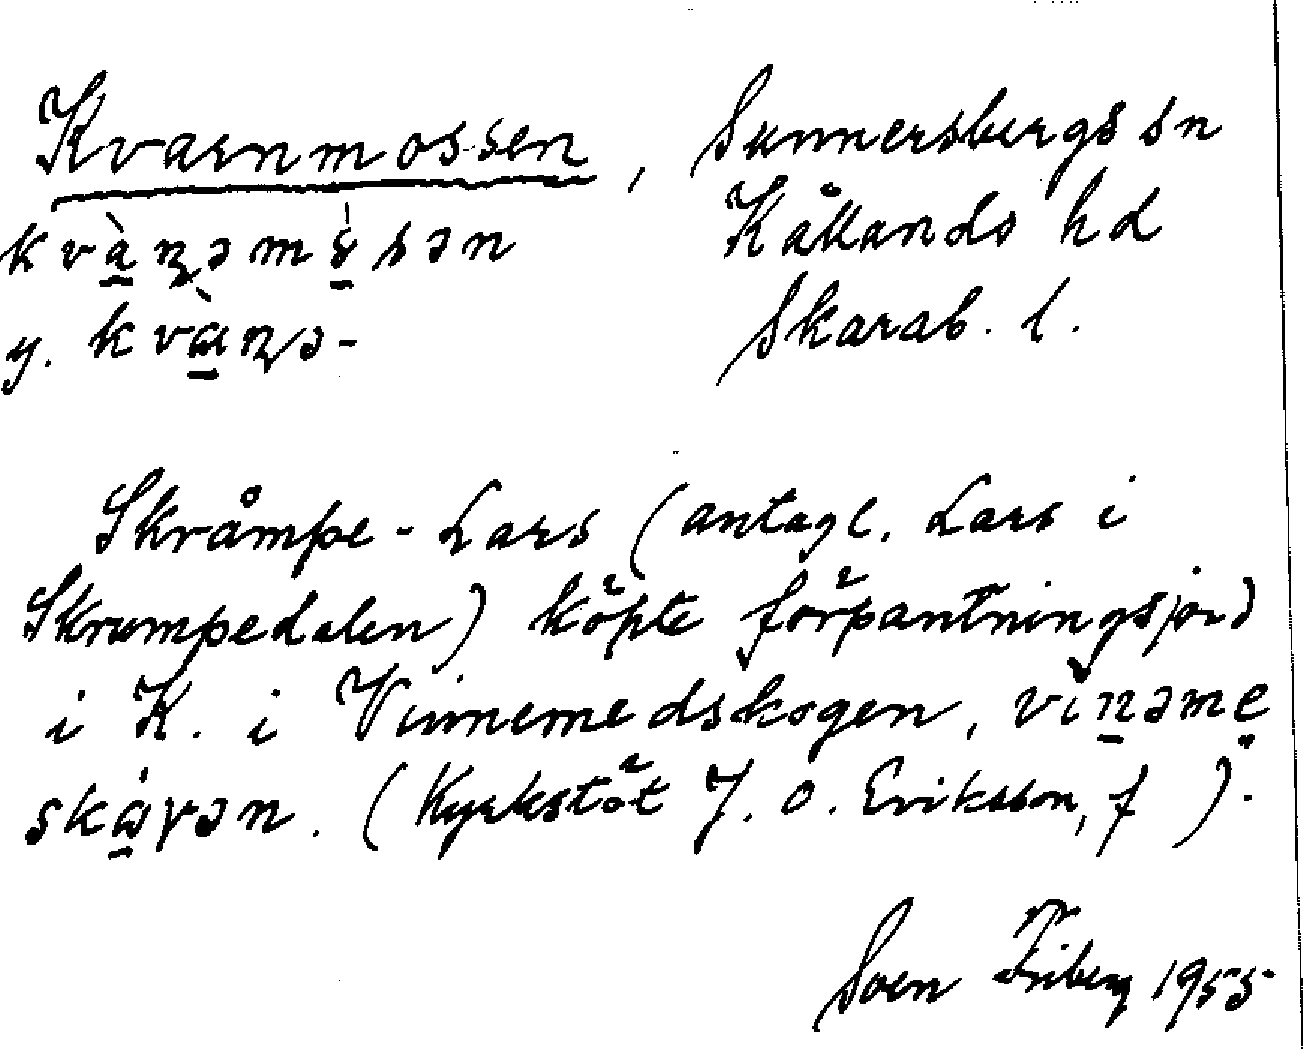 Kvarnmossen, Sunnersbergs sn
Kållands hd
y.
Skarab. l.
Skråmpe-Lars (antagl. Lars i
Skrumpedalen) köpte förpantningsjord
i K. i Vinnemedskogen,
(Kyrkstöt J. O. Eriksson, f ).
Sven Friberg 1955